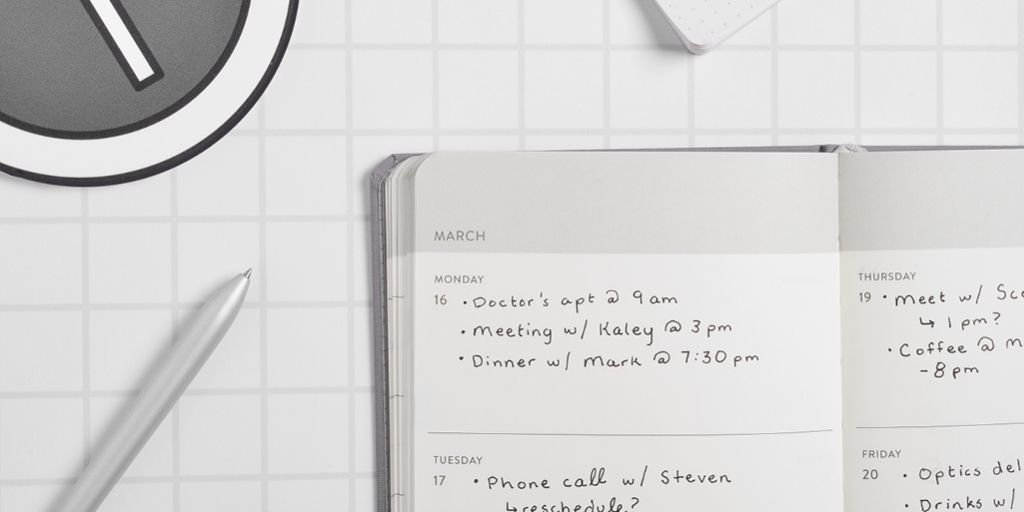 MARCH
MONDAY
16 • Doctor's apt @ 9 am
• Meeting w/ Kaley @ 3 pm
• Dinner w/ Mark @ 7:30 pm
TUESDAY
17 • Phone call w/ Steven
↳ reschedule?
THURSDAY
19 • Meet w/
↳ 1 pm?
• Coffee @
- 8 pm
FRIDAY
20 • Optics
• Drinks w/